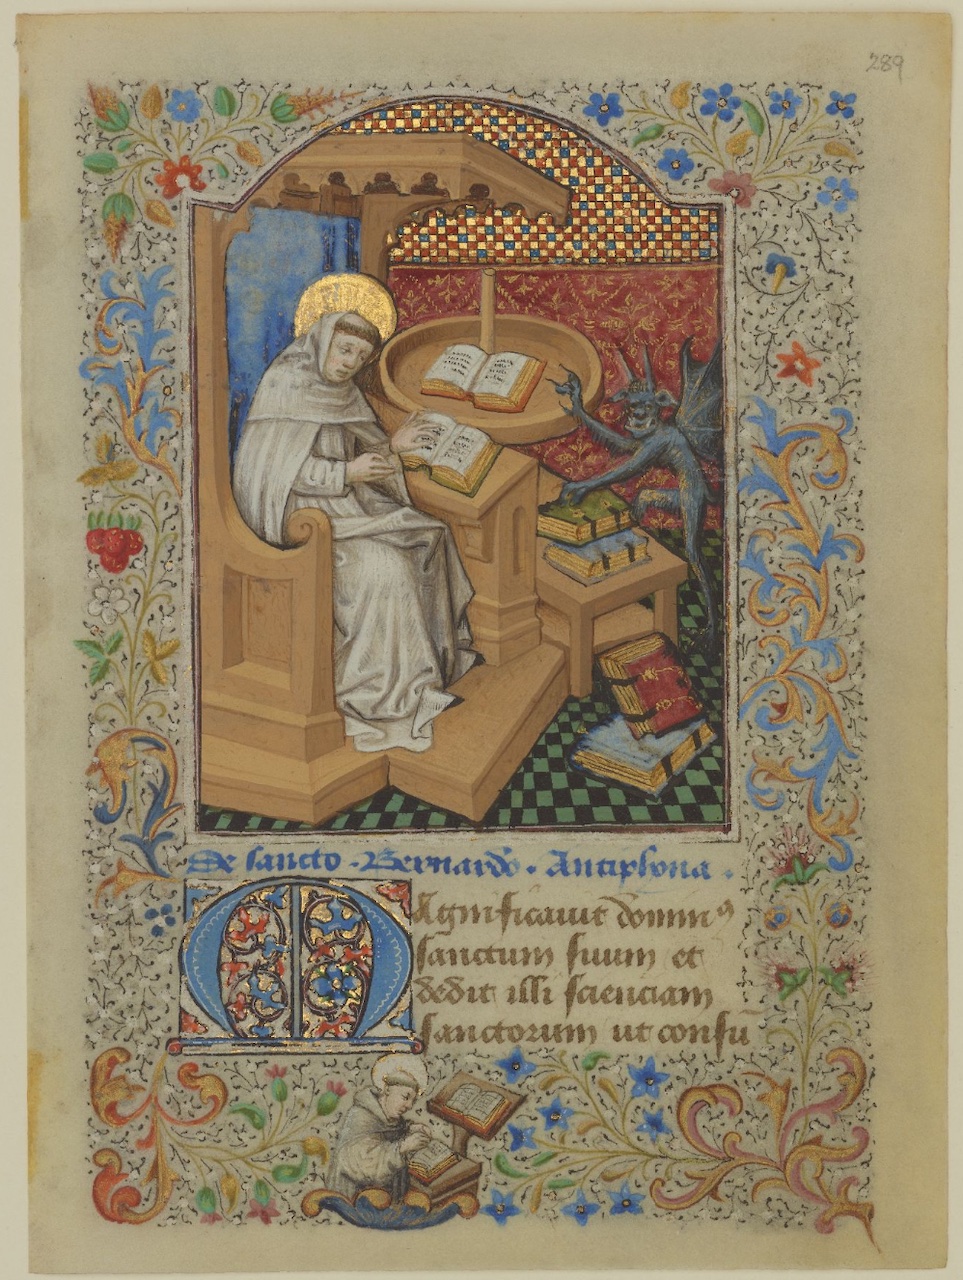 289
De sancto Bernardo. Antiphona.
Magnificauit domin⁹
sanctum suum et
dedit illi scienciam
sanctorum ut consū